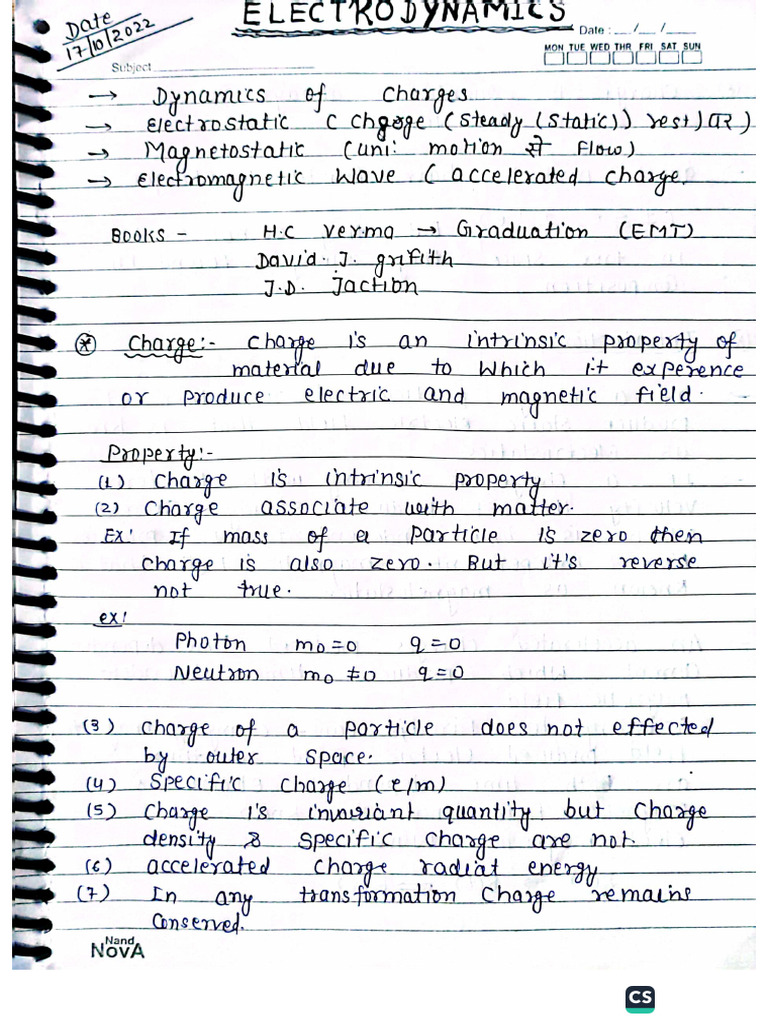 ELECTRODYNAMICS
Date
17/10/2022
Date : __/__/__
MON TUE WED THR FRI SAT SUN
Subject
→ Dynamics of Charges
→ Electrostatic ( Charge (Steady (Static)) rest) पर )
→ Magnetostatic (uni: motion से flow)
→ Electromagnetic Wave ( accelerated charge.
BOOKS - H.C Verma → Graduation (EMT)
David. J. grifith
J.D. Jaction
* Charge:- Charge is an intrinsic property of
material due to which it experence
or produce electric and magnetic field.
Property:-
(1) Charge is intrinsic property
(2) Charge associate with matter.
Ex: If mass of a particle is zero then
charge is also zero. But it's reverse
not true.
ex:
Photon m₀=0 q=0
Neutron m₀≠0 q=0
(3) Charge of a particle does not effected
by outer space.
(4) Specific Charge (e/m)
(5) Charge is invariant quantity but Charge
density & specific charge are not.
(6) accelerated charge radiat energy
(7) In any transformation Charge remains
Conserved.
Nand
NovA
CS